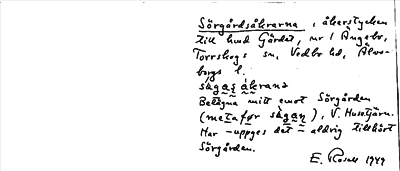 Sörgårdsåkrarna, åkerstycken
till hmd Gärdet, nr 1 Ängebo,
Torrskogs sn, Vedbo hd, Älvs-
borgs l.
sö̀gaṣåkrana
Belägna mitt emot Sörgården
(metafør sö̀gaṇ), V. Husetjärn.
Har - uppges det - aldrig tillhört
Sörgården.
E. Rosell 1949